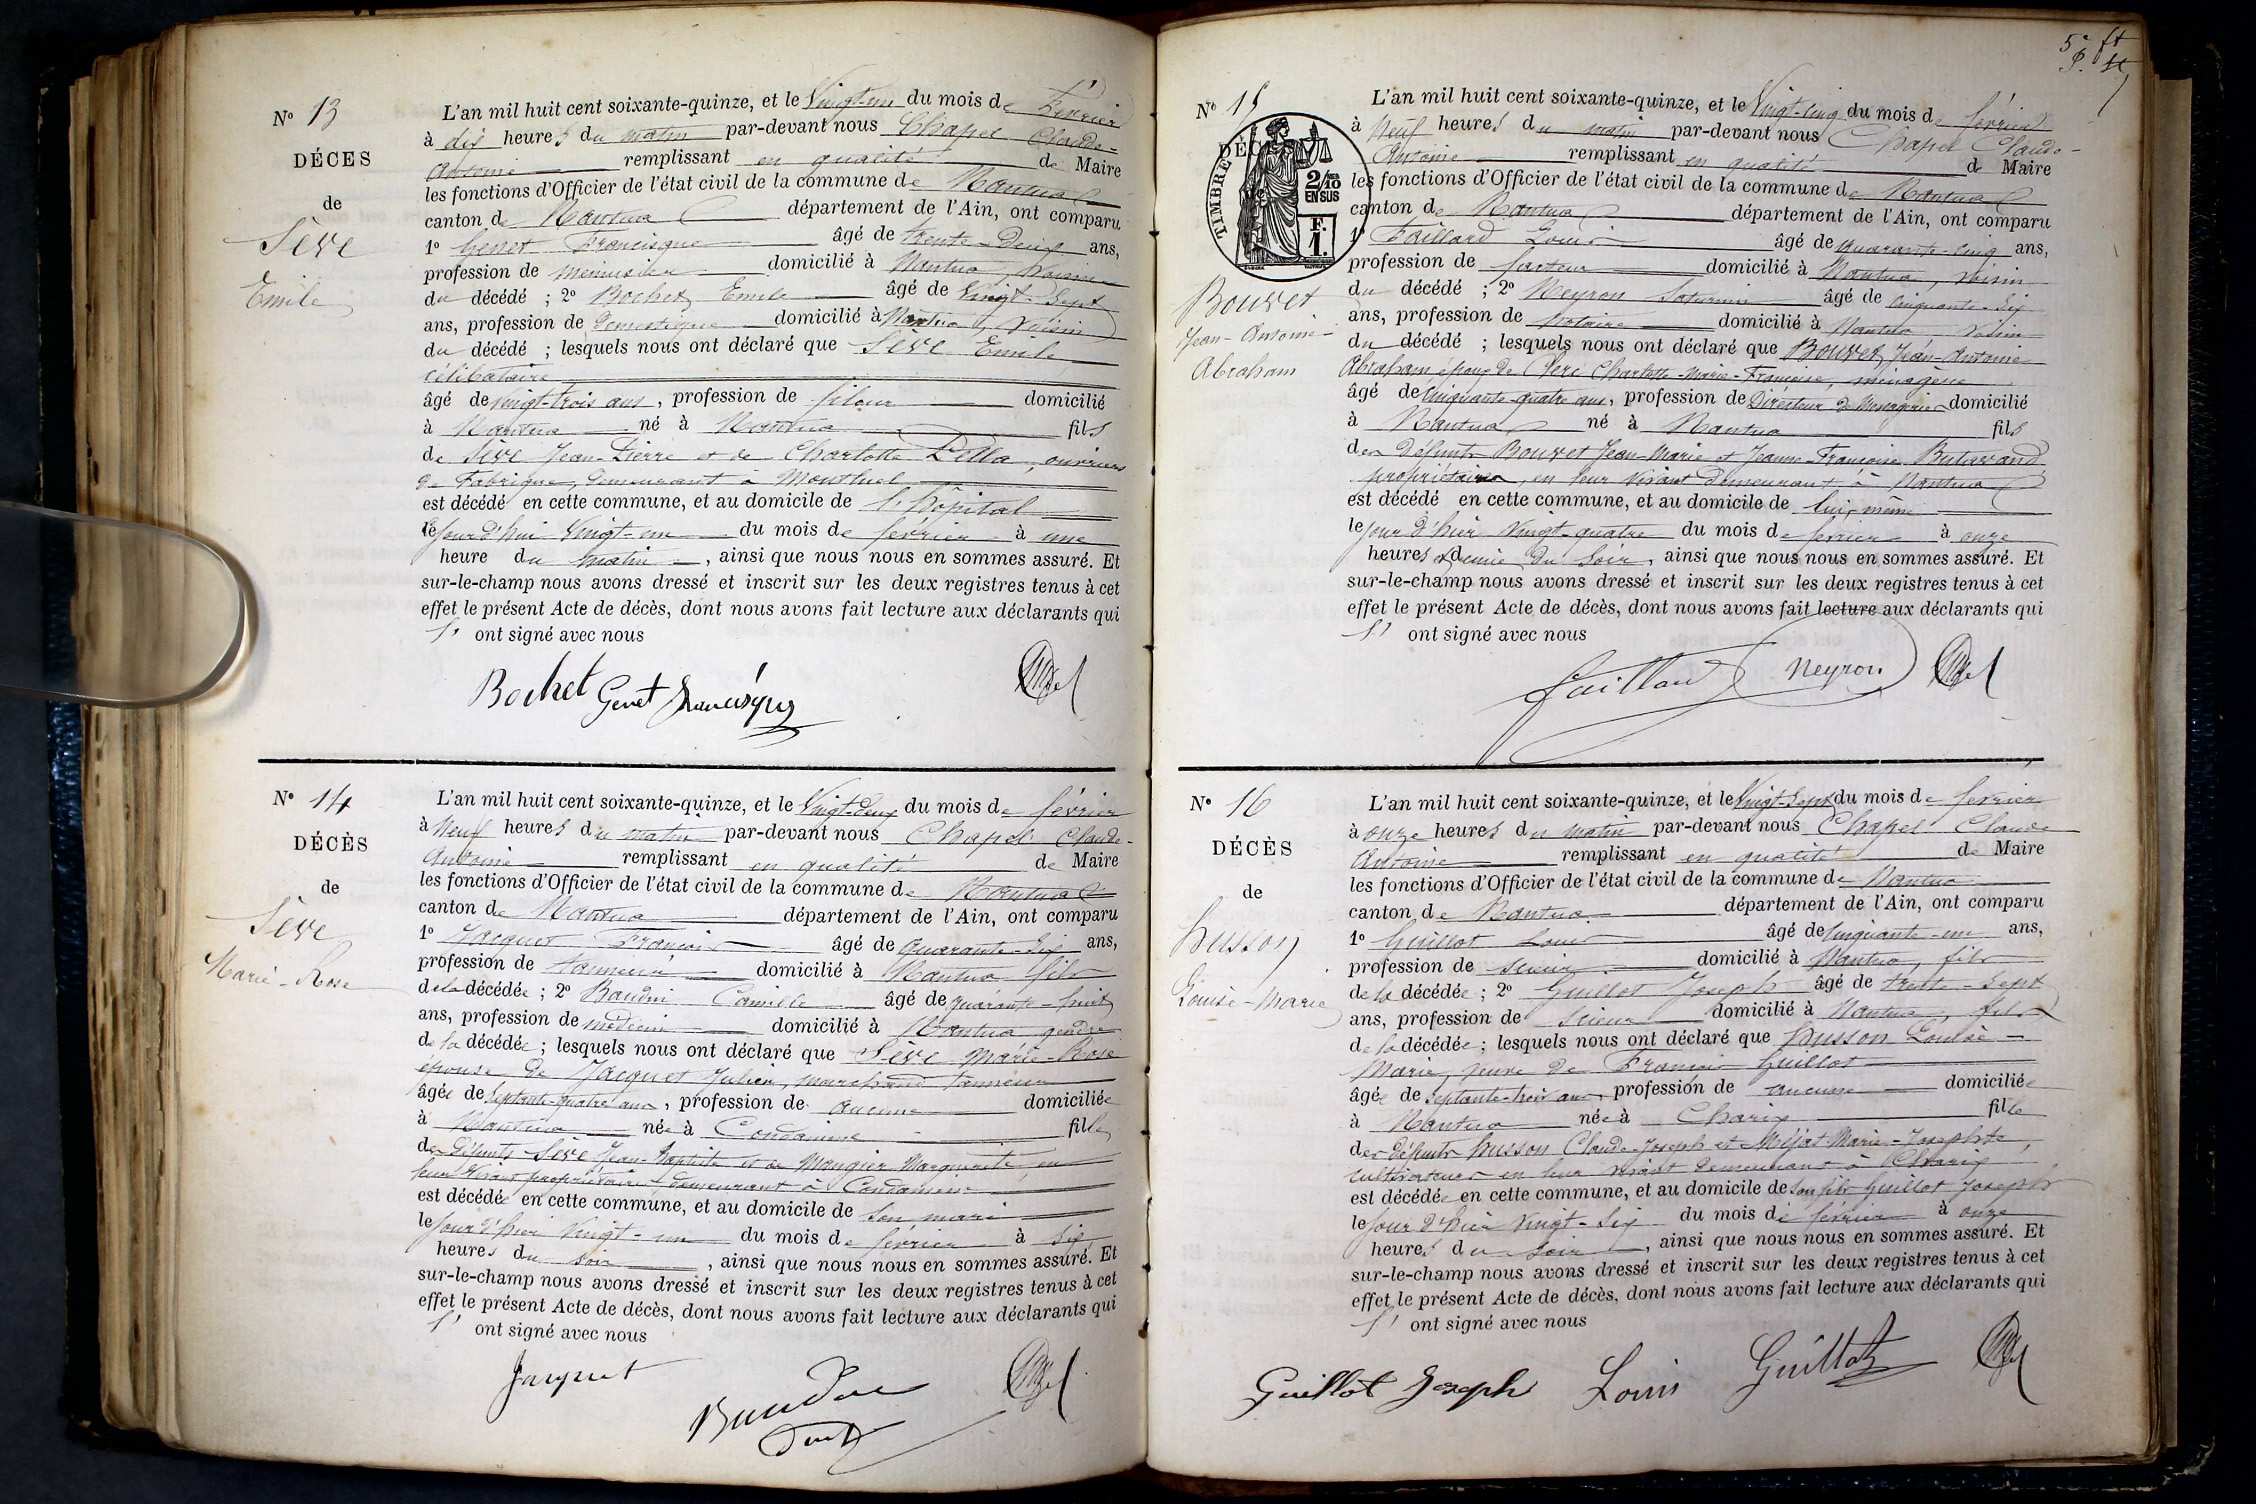 Nº 13
DÉCES
de
Sève
Emile
L'an mil huit cent soixante-quinze, et le Vingt-un du mois de Février
à dix heures du matin par-devant nous Chapel Claude-
Antoine remplissant en qualité de Maire
les fonctions d'Officier de l'état civil de la commune de Nantua
canton de Nantua département de l'Ain, ont comparu
1º Genet Francisque âgé de trente-Deux ans,
profession de menuisier domicilié à Nantua,
du décédé ; 2º Bochet Emile âgé de Vingt-Sept
ans, profession de Domestique domicilié à Nantua, Voisin
du décédé ; lesquels nous ont déclaré que Sève Emile
célibataire
âgé de vingt-trois ans, profession de fileur domicilié
à Nantua né à Nantua fils
de Sève Jean-Pierre et de Charlotte Della, ouvriers
de Fabrique, demeurant à Montluel
est décédé en cette commune, et au domicile de l'hôpital
le jour d'hui Vingt-un du mois de février à une
heure du matin, ainsi que nous nous en sommes assuré. Et
sur-le-champ nous avons dressé et inscrit sur les deux registres tenus à cet
effet le présent Acte de décès, dont nous avons fait lecture aux déclarants qui
ont signé avec nous
Bochet Genet Francisque
Nº 14
DÉCÈS
de
Sève
Marie-Rose
L'an mil huit cent soixante-quinze, et le Vingt-deux du mois de février
à Neuf heures du matin par-devant nous Chapel Claude-
Antoine remplissant en qualité de Maire
les fonctions d'Officier de l'état civil de la commune de Nantua
canton de Nantua département de l'Ain, ont comparu
1º Jacquet François âgé de quarante-Six ans,
profession de tanneur domicilié à Nantua fils
de la décédée ; 2º Baudin Camille âgé de quarante-huit
ans, profession de médecin domicilié à Nantua, gendre
de la décédée ; lesquels nous ont déclaré que Sève Marie-Rose
épouse de Jacquet Julien, marchand tanneur
âgée de Septante-quatre ans, profession de aucune domiciliée
à Nantua née à Condamine fille
des Défunts Sève Jean-Baptiste et de Mangier Marguerite, en
leur Vivant propriétaires demeurant à Condamine
est décédée en cette commune, et au domicile de Son mari
le jour d'hier Vingt-un du mois de février à Six
heures du soir, ainsi que nous nous en sommes assuré. Et
sur-le-champ nous avons dressé et inscrit sur les deux registres tenus à cet
effet le présent Acte de décès, dont nous avons fait lecture aux déclarants qui
ont signé avec nous
Jacquet
Baudin
5e
Nº 15
DÉC
TIMBRE
2/10 EN SUS
F. 1.
Bouvet
Jean-Antoine-
Abraham
L'an mil huit cent soixante-quinze, et le Vingt-cinq du mois de février
à Neuf heures du matin par-devant nous Chapel Claude-
Antoine remplissant en qualité de Maire
les fonctions d'Officier de l'état civil de la commune de Nantua
canton de Nantua département de l'Ain, ont comparu
1º Faillard Louis âgé de quarante-cinq ans,
profession de facteur domicilié à Nantua, voisin
du décédé ; 2º Neyron Saturnin âgé de cinquante-six
ans, profession de Notaire domicilié à Nantua, voisin
du décédé ; lesquels nous ont déclaré que Bouvet Jean-Antoine
Abraham époux de Peri Charlotte-Marie-Françoise, ménagère
âgé de cinquante-quatre ans, profession de Directeur de Messageries domicilié
à Nantua né à Nantua fils
des Défunts Bouvet Jean-Marie et Jeanne-Françoise Butavand
propriétaires, en leur Vivant demeurant à Nantua
est décédé en cette commune, et au domicile de lui-même
le jour d'hier Vingt-quatre du mois de février à onze
heures et demie du Soir, ainsi que nous nous en sommes assuré. Et
sur-le-champ nous avons dressé et inscrit sur les deux registres tenus à cet
effet le présent Acte de décès, dont nous avons fait lecture aux déclarants qui
ont signé avec nous
Faillard Neyron
Nº 16
DÉCÈS
de
husson
Louise-Marie
L'an mil huit cent soixante-quinze, et le Vingt-Sept du mois de février
à onze heures du matin par-devant nous Chapel Claude
Antoine remplissant en qualité de Maire
les fonctions d'Officier de l'état civil de la commune de Nantua
canton de Nantua département de l'Ain, ont comparu
1º Guillot Louis âgé de Cinquante-un ans,
profession de scieur domicilié à Nantua, fils
de la décédée ; 2º Guillot Joseph âgé de trente-Sept
ans, profession de Scieur domicilié à Nantua, fils
de la décédée ; lesquels nous ont déclaré que husson Louise-
Marie, veuve de François Guillot
âgée de Septante-trois ans, profession de aucune domiciliée
à Nantua née à Charix fille
des défunts husson Claude-Joseph et Méjat Marie-Josephte,
cultivateurs en leur vivant demeurant à Charix
est décédée en cette commune, et au domicile de Son fils Guillot Joseph
le jour d'hier Vingt-Six du mois de février à onze
heures du soir, ainsi que nous nous en sommes assuré. Et
sur-le-champ nous avons dressé et inscrit sur les deux registres tenus à cet
effet le présent Acte de décès, dont nous avons fait lecture aux déclarants qui
ont signé avec nous
Guillot Joseph Louis Guillot